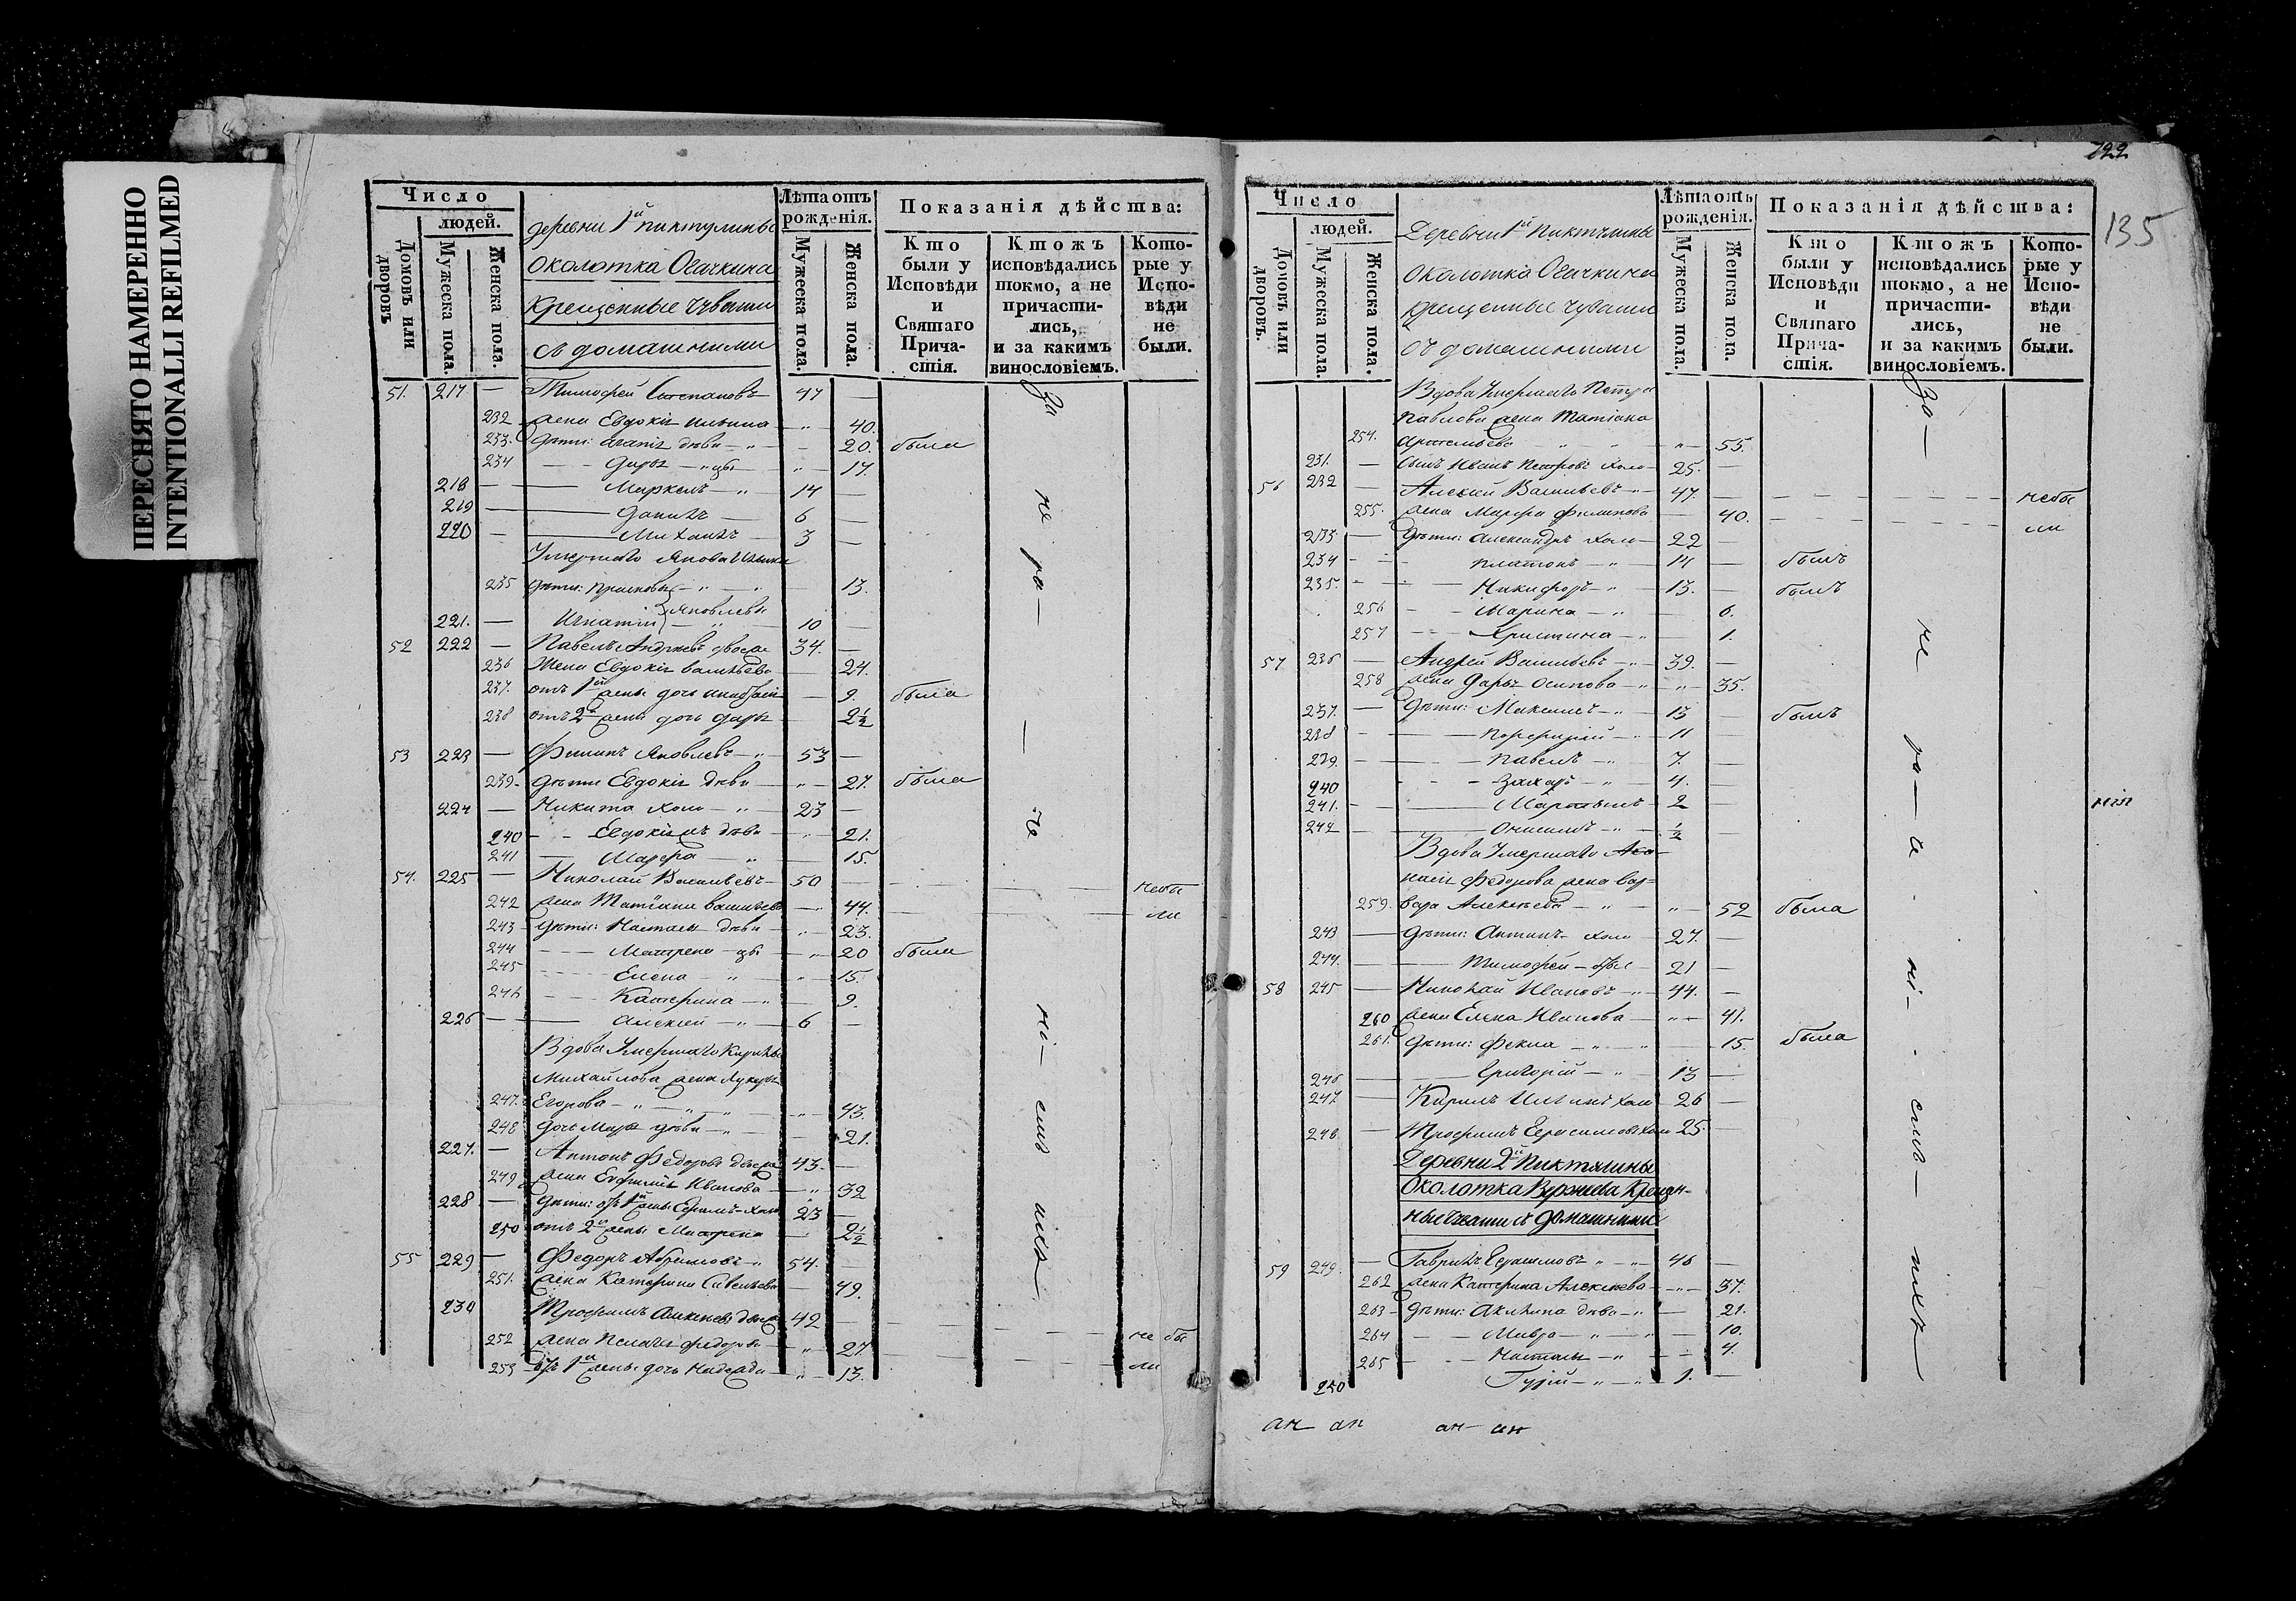 ПЕРЕСНЯТО НАМЕРЕННО
INTENTIONALLI REFILMED
Число
людей.
Домовъ или дворовъ
Мужеска пола.
Женска пола.
деревни 1й пиктулины
околотка Осачкина
крещенные чуваши
съ домашними
Лѣта отъ рожденія.
Мужеска пола.
Женска пола.
Показанія дѣйства:
Кто были у Исповѣди и Святаго Причастія.
Ктожъ исповѣдались токмо, а не причастились, и за какимъ винословіемъ.
Которые у Исповѣди не были.
51. 217 — Тимофей Степановъ 47 —
232 жена Евдокія Ильина 40.
233. дѣти: Агапія дѣви 20. была
234 Дарья 17.
218 Маркелъ 14 —
219 Данилъ 6 —
220 Михаилъ 3 —
Умершаго Якова Ильина
235 дѣти: Прасковья 13.
Яковлевы
221. — Игнатій 10 —
52 222 — Павелъ Андреевъ 34. —
236 Жена Евдокія Васильева 24.
237. отъ 1й жены дочь 9. была
238 отъ 2й жены дочь Дарья 2½
53 223 — Филипъ Яковлевъ 53 —
239. дѣти Евдокія дѣви 27. была
224 — Никита холо 23 —
240 Евдокія дѣви 21.
241 Марфа 15.
54. 225 — Николай Васильевъ 50 — небы
242 жена Татіана Васильева 44. ли
243 дѣти: Настасья дѣви 23.
244 Матрена 20 была
245 Елена 15.
246 Катерина 9.
226 Алексей 6 —
Вдова Умершаго Кирилы
Михайлова жена Лукерья
247. Егорова 43.
248 дочь Марья дѣви 21.
227. — Антонъ Федоровъ 43. —
249 жена Евфимія Иванова 32
228 — дѣти: отъ 1й жены холо 23 —
250 отъ 2й жены Матрена 2½
55 229 — Федоръ Абрамовъ 54. —
251. жена Катерина Савельева 49.
230 Трофимъ Алексеевъ 42 —
252 жена Пелагея Федорова 27 не бы
253 отъ 1й жены дочь Надежда 13. ли
За не ра — — че ні — емъ ихъ
122
135
Число
людей.
Домовъ или дворовъ.
Мужеска пола.
Женска пола.
Деревни 1й Пиктулины
околотка Осачкина
крещенные чуваши
съ домашними
Лѣта отъ рожденія.
Мужеска пола.
Женска пола.
Показанія дѣйства:
Кто были у Исповѣди и Святаго Причастія.
Ктожъ исповѣдались токмо, а не причастились, и за какимъ винословіемъ.
Которые у Исповѣди не были.
Вдова Умершаго Петра
Павлова жена Татіана
254. 55.
231. — сынъ Иванъ Петровъ холо 25. —
56 232 — Алексей Васильевъ 47. — небы
255. жена Марфа Филипова 40. ли
233 — дѣти: Александръ холо 22 —
234 Платонъ 14 — былъ
235. Никифоръ 13. — былъ
256 Марина 6.
257 Христина 1.
57 236 — Андрей Васильевъ 39. —
258 жена Дарья Осипова 35.
237. — дѣти: Максимъ 13 — былъ
238 Порфирій 11 —
239. Павелъ 7. —
240 Захаръ 4. —
241. Мартынъ 2 —
242 Онисимъ ½ —
Вдова Умершаго Афо-
насія Федорова жена Вар=
259. вара Алексеева 52 была
243 дѣти: Антипъ холо 27. —
244. Тимофей 21 —
58 245 — Николай Ивановъ 44. —
260 жена Елена Иванова 41.
261. дѣти: Фекла 15. была
246 Григорій 13 —
247. — Кирилъ Ильинъ холо 26 —
248 — Трофимъ Герасимовъ холо 25. —
Деревни 2й Пиктулины
околотка крещен-
ные чуваши съ домашними
59 249. — Гаврилъ Герасимовъ 46 —
262 жена Катерина Алексеева 37.
263 дѣти: Акилина дѣви 21.
264 Мавра 10.
265 Настасья 4.
250 Гурій 1. —
За — не ра — че - ні - емъ — ніхъ
ан ан ан ан